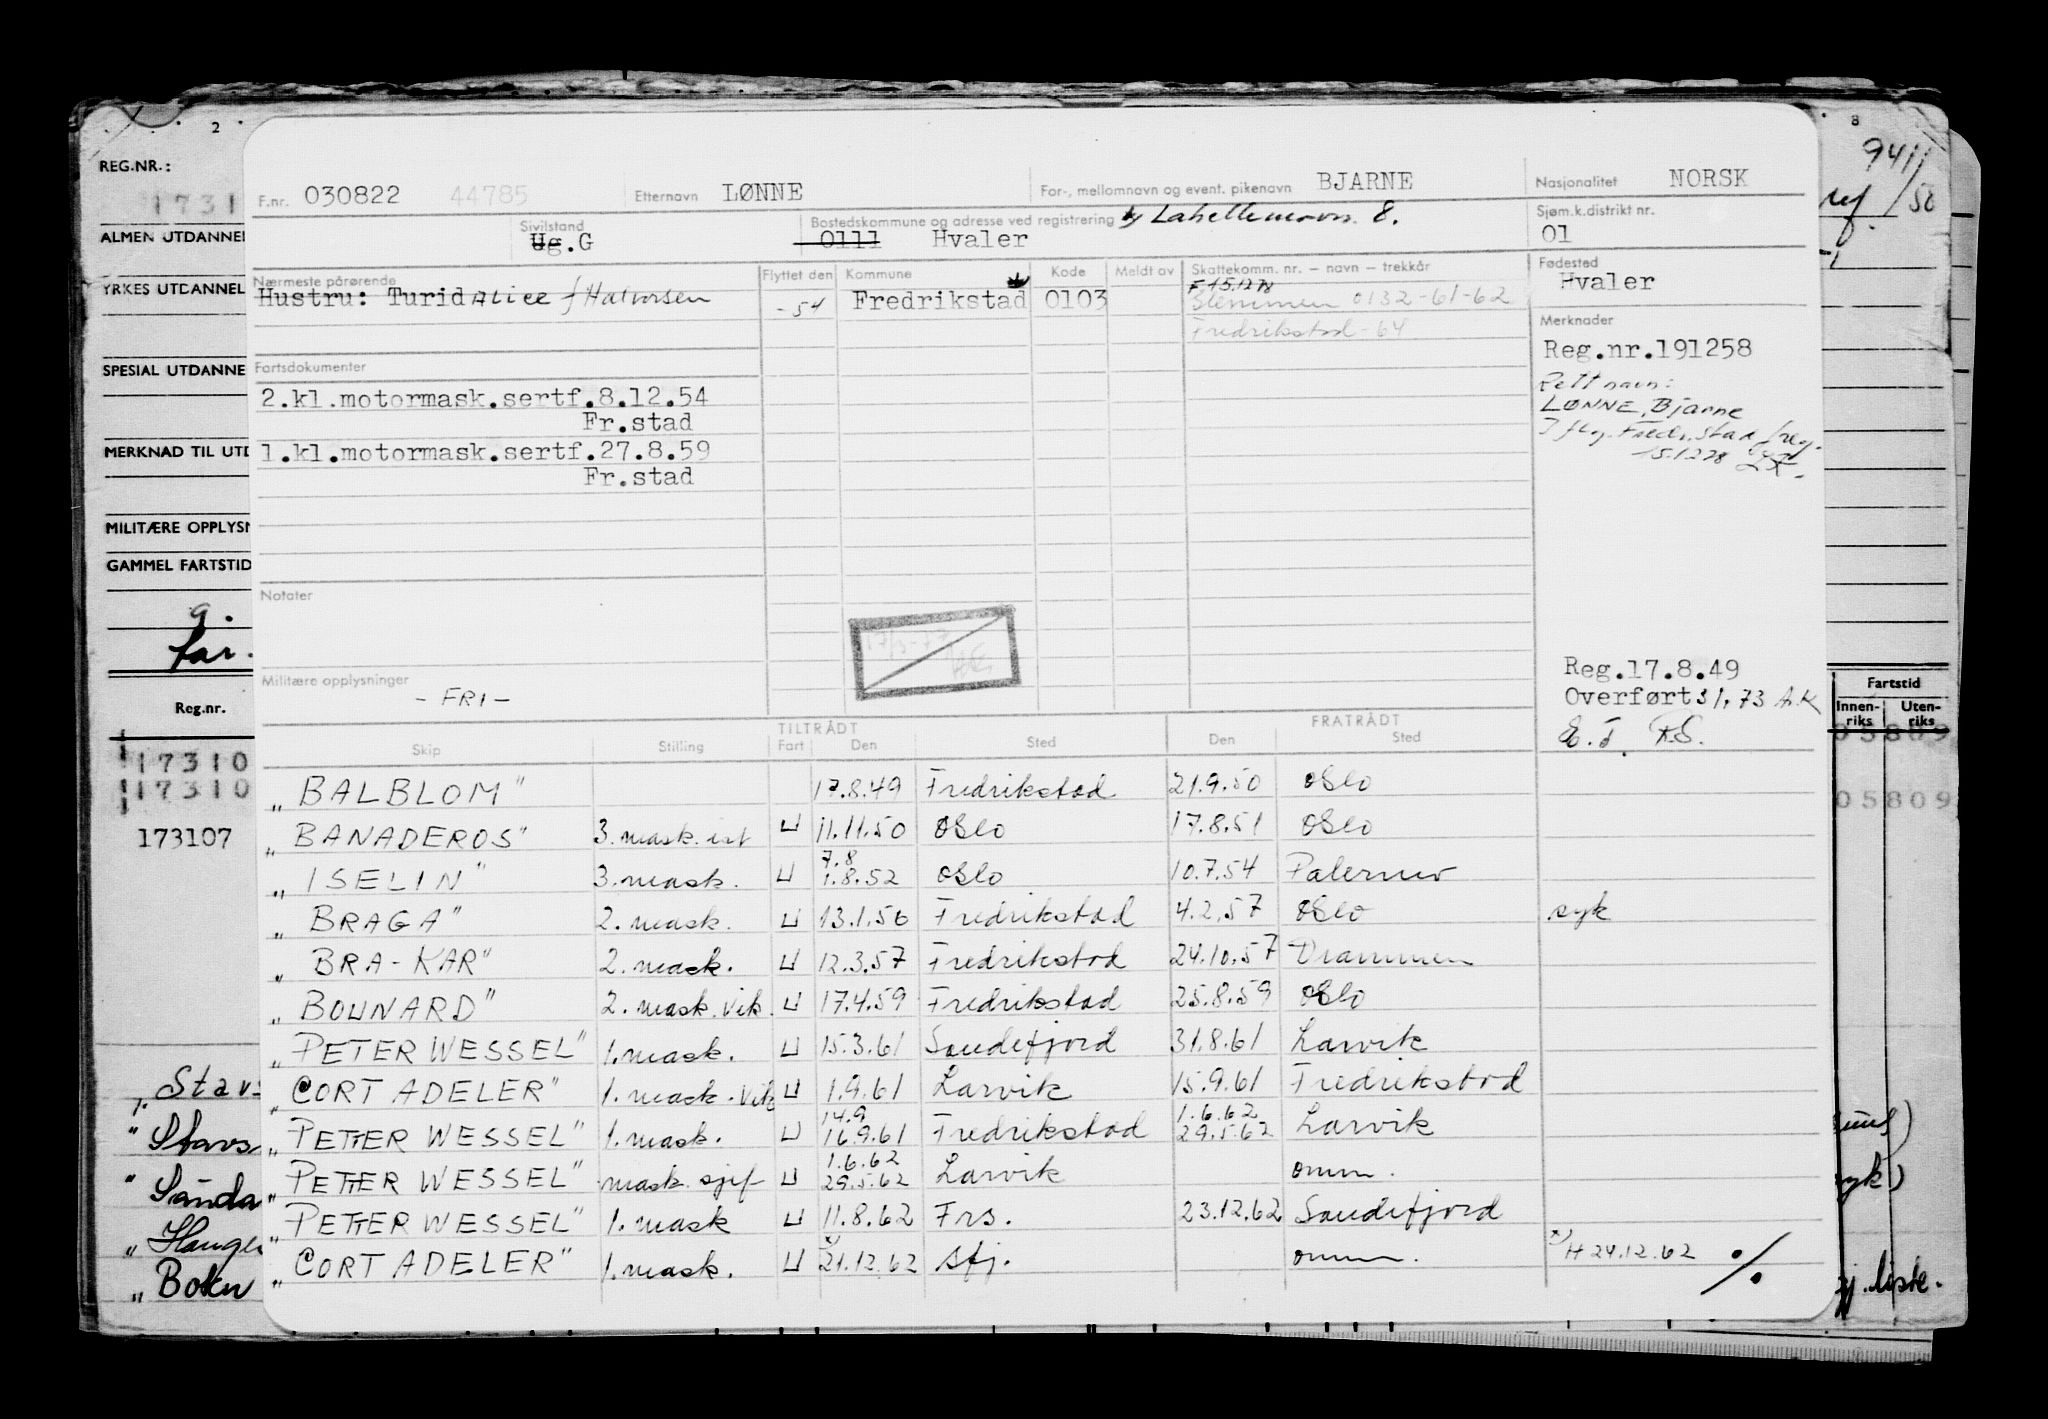 2 8
REG.NR.: 9411
1731 /50
F.nr. 030822 44785 Etternavn LØNNE For-, mellomnavn og event. pikenavn BJARNE Nasjonalitet NORSK
ALMEN UTDANNEL
Sivilstand Ug.G Bostedskommune og adresse ved registrering 8. Sjøm.k.distrikt nr.
0111 Hvaler 01
YRKES UTDANNEL
Nærmeste pårørende Flyttet den Kommune Kode Meldt av Skattekomm. nr. – navn – trekkår Fødested
F 15.12.78
Hustru: Turid ALICE f Halvorsen - 54 Fredrikstad 0103 Glemmen 0132-61-62 Hvaler
Fredrikstad - 64 Merknader
Reg.nr.191258
SPESIAL UTDANNE
Fartsdokumenter
Rett navn:
2.kl.motormask.sertf.8.12.54 LØNNE, Bjarne
Fr.stad Iflg. Fredr.stad freg.
MERKNAD TIL UTD
1.kl.motormask.sertf.27.8.59 15.12.78
Fr.stad
MILITÆRE OPPLYSN
GAMMEL FARTSTID
Notater
g.
far.
Militære opplysninger
- FRI -
Reg.17.8.49
Overført 3/1.73 A.K
Fartstid
Innen-riks Uten-riks
Reg.nr.
TILTRÅDT FRATRÅDT
Skip Stilling Fart Den Sted Den Sted
17310 05809
17310 05809
173107
„BALBLOM" 17.8.49 Fredrikstad 21.9.50 Oslo
„BANADEROS" 3. mask. ist U 11.11.50 Oslo 17.8.51 Oslo
7.8
„ISELIN" 3. mask. U 1.8.52 Oslo 10.7.54 Palermo
„BRAGA" 2. mask. U 13.1.56 Fredrikstad 4.2.57 Oslo syk
„BRA-KAR" 2. mask. U 12.3.57 Fredrikstad 24.10.57 Drammen
„BOUNARD" 2. mask. vik. U 17.4.59 Fredrikstad 25.8.59 Oslo
„PETER WESSEL" 1. mask. U 15.3.61 Sandefjord 31.8.61 Larvik
„CORT ADELER" 1. mask. vik U 1.9.61 Larvik 15.9.61 Fredrikstad
14.9 1.6.62
„PETTER WESSEL" 1. mask. U 16.9.61 Fredrikstad 29.5.62 Larvik
1.6.62
„PETTER WESSEL" mask. sjef U 29.5.62 Larvik omm.
„PETTER WESSEL" 1. mask U 11.8.62 Frs. 23.12.62 Sandefjord
„CORT ADELER" 1. mask. U 21.12.62 Sfj. omm. x) H 24.12.62 ./.
„Stavs
„Stavs
„Sanda
„Hauge
„Bokn
syk)
liste.